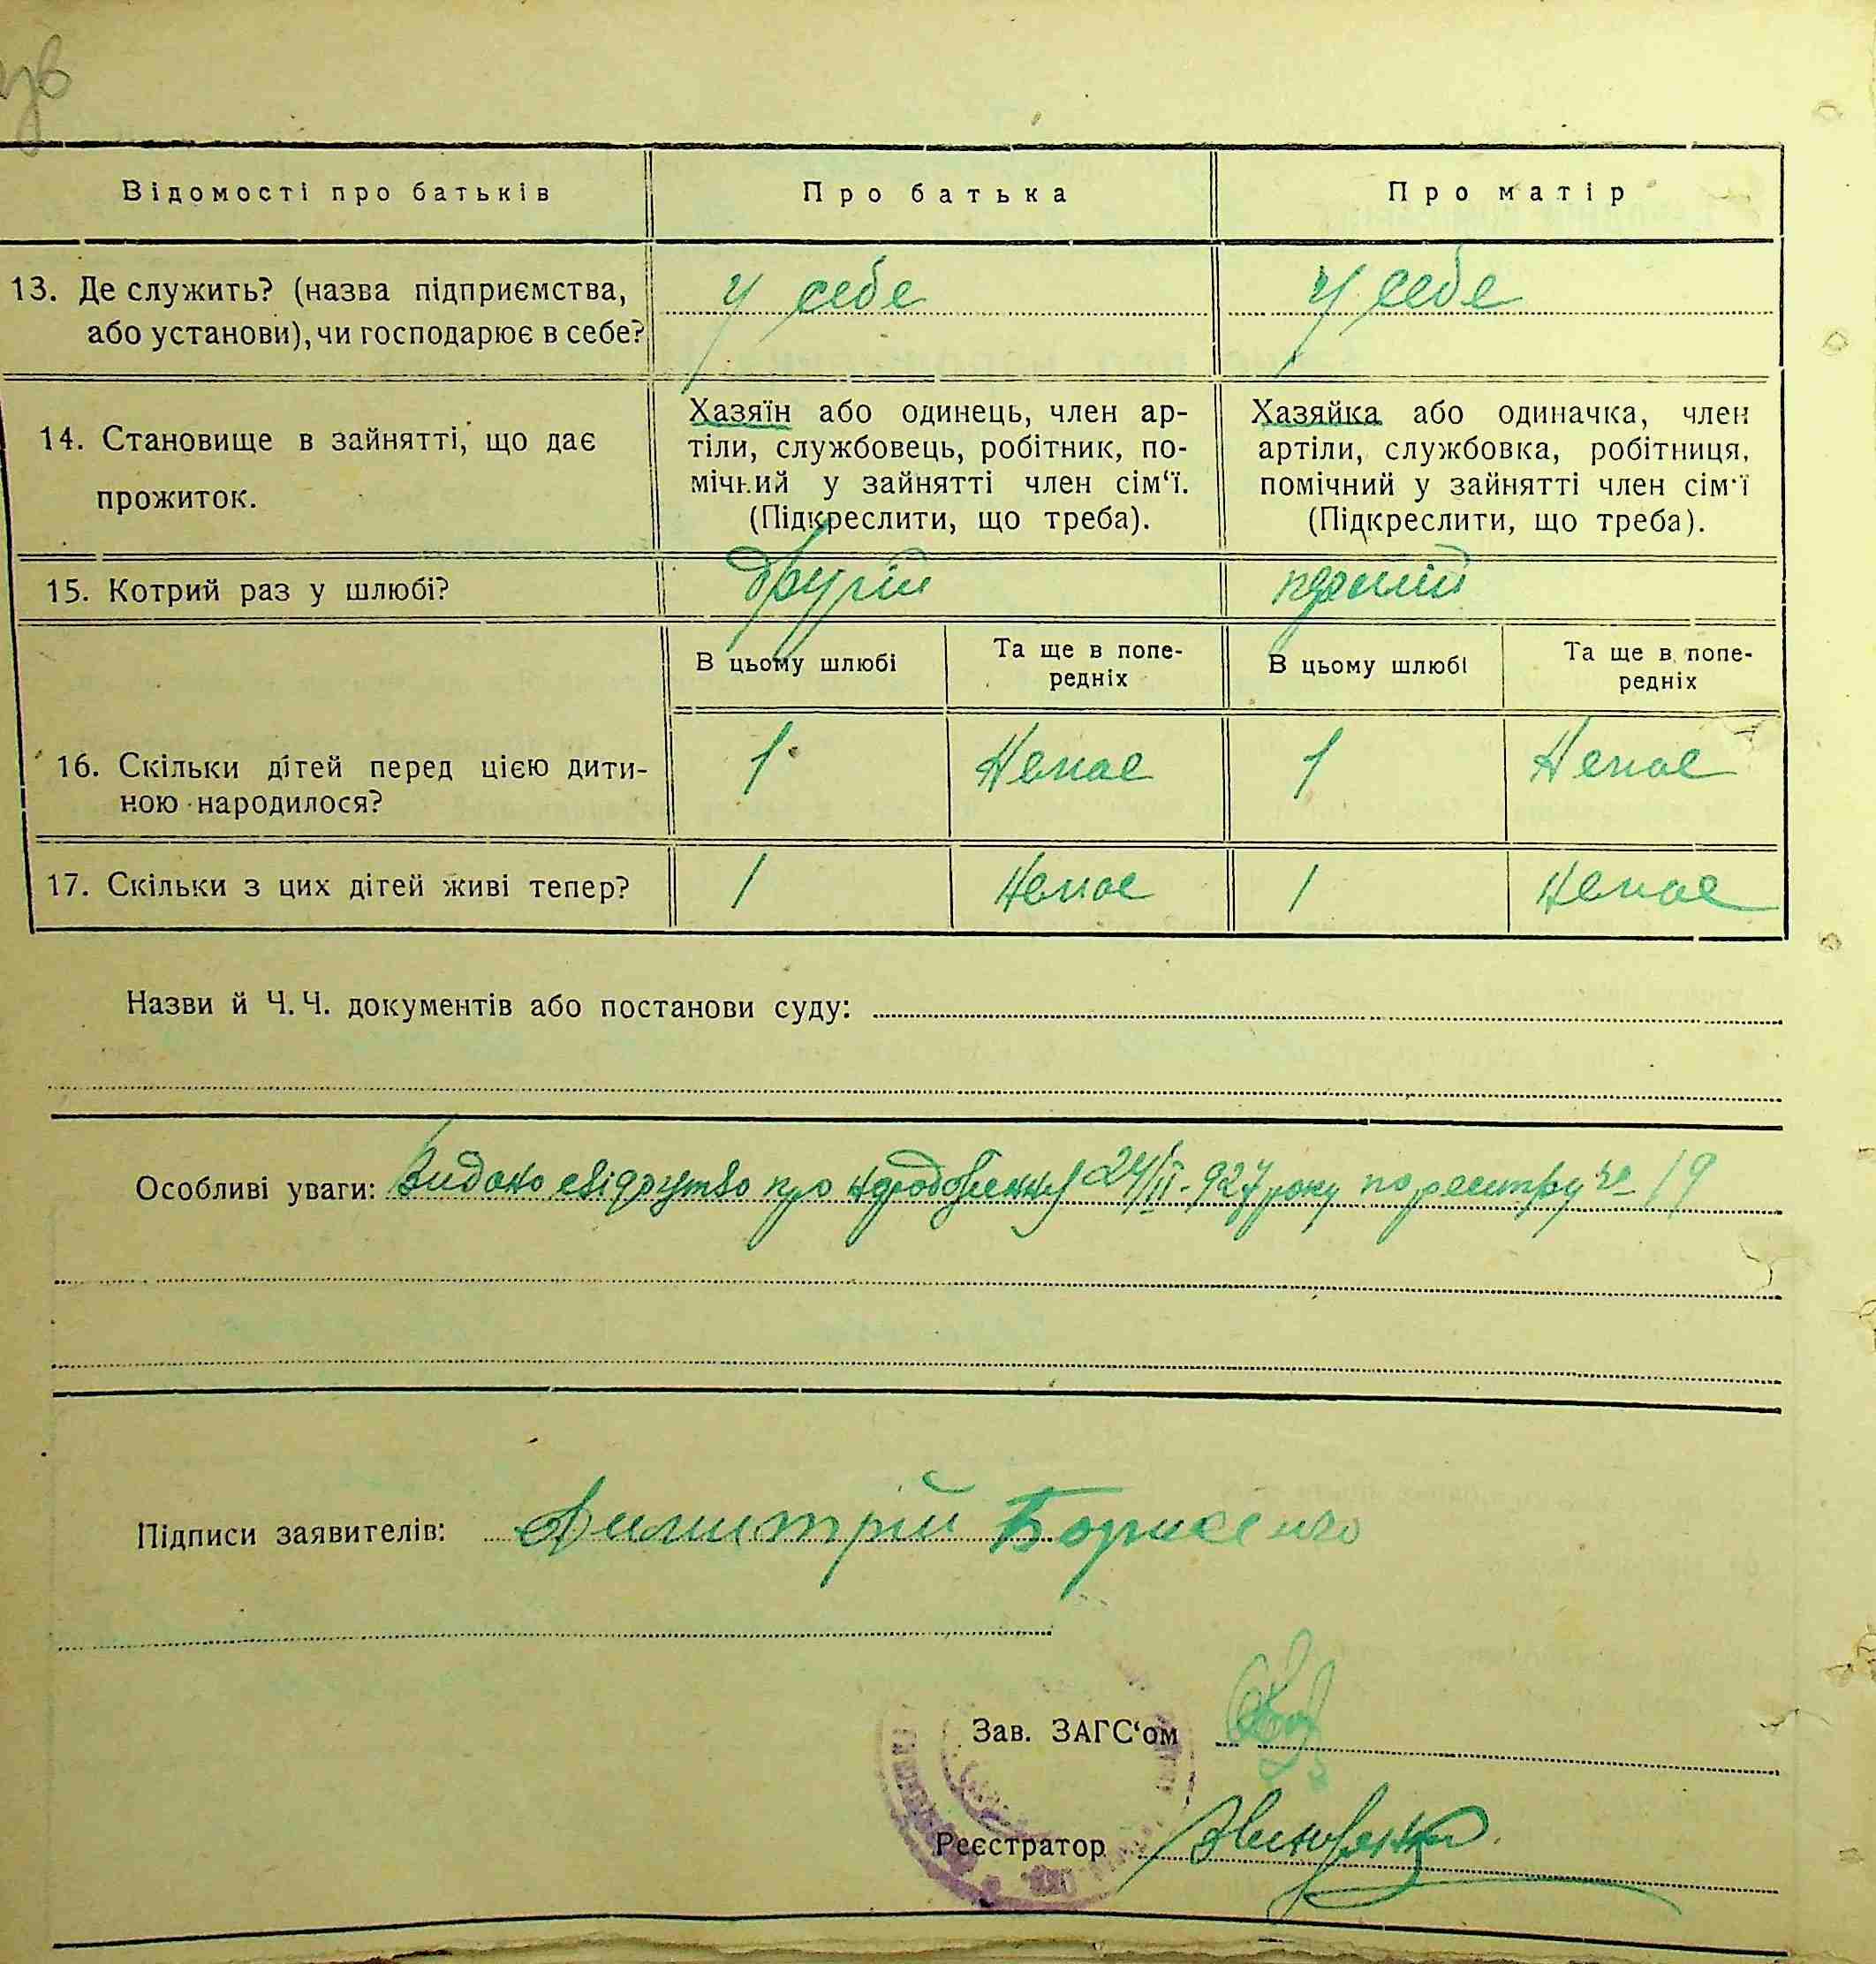 Відомості про батьків
Про батька
Про матір
13. Де служить? (назва підприємства,
або установи), чи господарює в себе?
у себе
у себе
14. Становище в зайнятті, що дає
прожиток.
Хазяїн або одинець, член ар-
тіли, службовець, робітник, по-
мічний у зайнятті член сім‘ї.
(Підкреслити, що треба).
Хазяйка або одиначка, член
артіли, службовка, робітниця,
помічний у зайнятті член сім‘ї
(Підкреслити, що треба).
15. Котрий раз у шлюбі?
другій
перший
В цьому шлюбі
Та ще в попе-
редніх
В цьому шлюбі
Та ще в попе-
редніх
16. Скільки дітей перед цією дити-
ною народилося?
1
Немає
1
Немає
17. Скільки з цих дітей живі тепер?
1
Немає
1
Немає
Назви й Ч. Ч. документів або постанови суду:
Особливі уваги: Видано свідоцтво про 24/II-927 року по реєстру № 19
Підписи заявителів: Димитрій
Зав. ЗАГС‘ом
Реєстратор